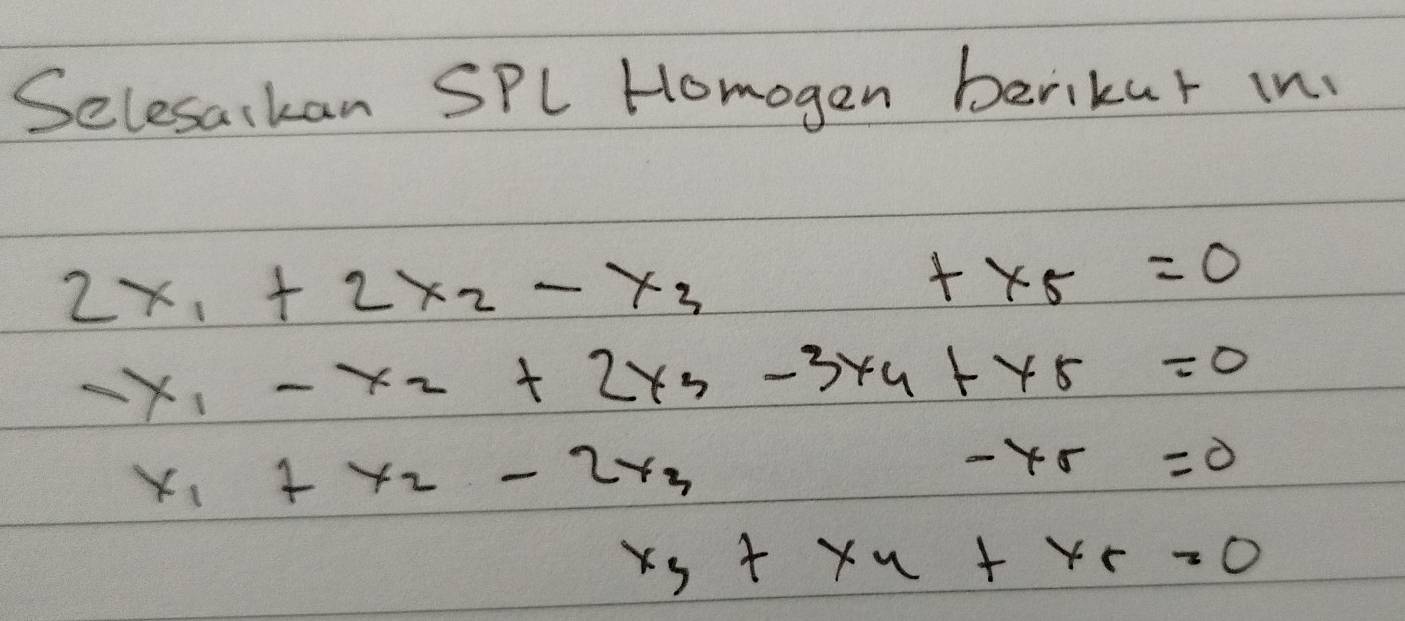 Selesaikan SPL Homogen berikut ini
2x₁ + 2x₂ - x₃ + x₅ = 0
-x₁ - x₂ + 2x₃ - 3x₄ + x₅ = 0
x₁ + x₂ - 2x₃ - x₅ = 0
x₃ + x₄ + x₅ = 0